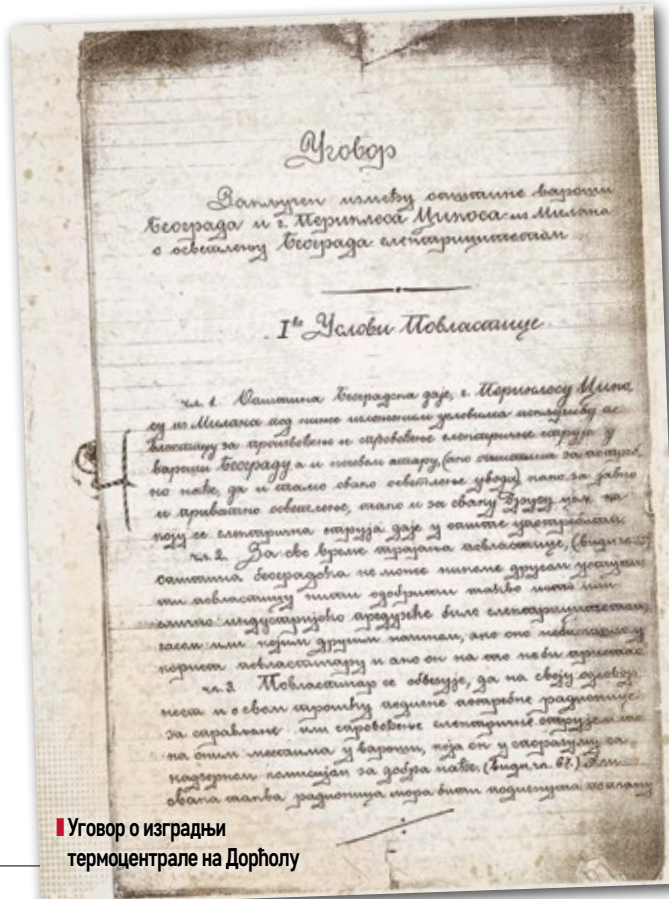 Уговор
Закључен између општине вароши
Београда и г. Периклеса Цикоса из Милана
о осветлењу Београда електрицитетом
I<sup>во</sup> Услови Повластице
чл. 1. Општина Београдска даје, г. Периклесу Цико
су из Милана под ниже изложеним условима искључиву по
властицу за произвођење и спровођење електричне струје у
вароши Београду а и њеном атару, (ако општина за потреб
но нађе, да и тамо овако осветлење уводи) како за јавно
и приватно осветлење, тако и за сваку другу цељ на
коју се електрична струја даје у опште употребити.
чл. 2. За све време трајања повластице, (види чл.
општина београдска не може никоме другом уступи
ти повластицу нити одобрити какво ново или
слично индустријско предузеће било електрицитетом,
гасом или којим другим начином, ако оно неби било у
корист повластичару и ако он на то неби пристао
чл. 3. Повластичар се обвезује, да на своју одговор
ност и о свом трошку подигне потребне радионице
за спровођење електричне струје
на оним местима у вароши, која он у споразуму са
надзорном комисијом за добра нађе. (види чл. 67.)
свака таква радионица мора бити подигнута по плану
Уговор о изградњи
термоцентрале на Дорћолу